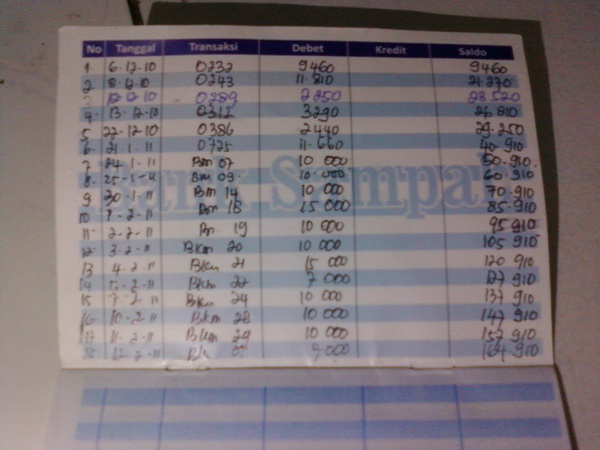 No Tanggal Transaksi Debet Kredit Saldo
1 6-12-10 0232 9460 9460
2 8-12-10 0243 11.810 21.270
3 12-12-10 0289 2250 23 520
4 13-12-10 0312 3290 26 810
5 22-12-10 0386 2440 29.250
6 21-1-11 0725 11.660 40.910
7 24-1-11 Bm 07 10 000 50.910
8 25-1-11 Bm 09 10 000 60.910
9 30-1-11 Bm 14 10 000 70-910
10 1-2-11 Bm 18 15 000 85-910
11 2-2-11 Bm 19 10 000 95 910
12 3-2-11 Bkm 20 10 000 105 910
13 4-2-11 Bkm 21 15 000 120 910
14 5-2-11 Bkm 22 7 000 127 910
15 7-2-11 Bkm 24 10 000 137 910
16 10-2-11 Bkm 28 10 000 147 910
17 11-2-11 Bkm 29 10 000 157 910
18 12-2-11 7 000 164 910
Bank Sampah